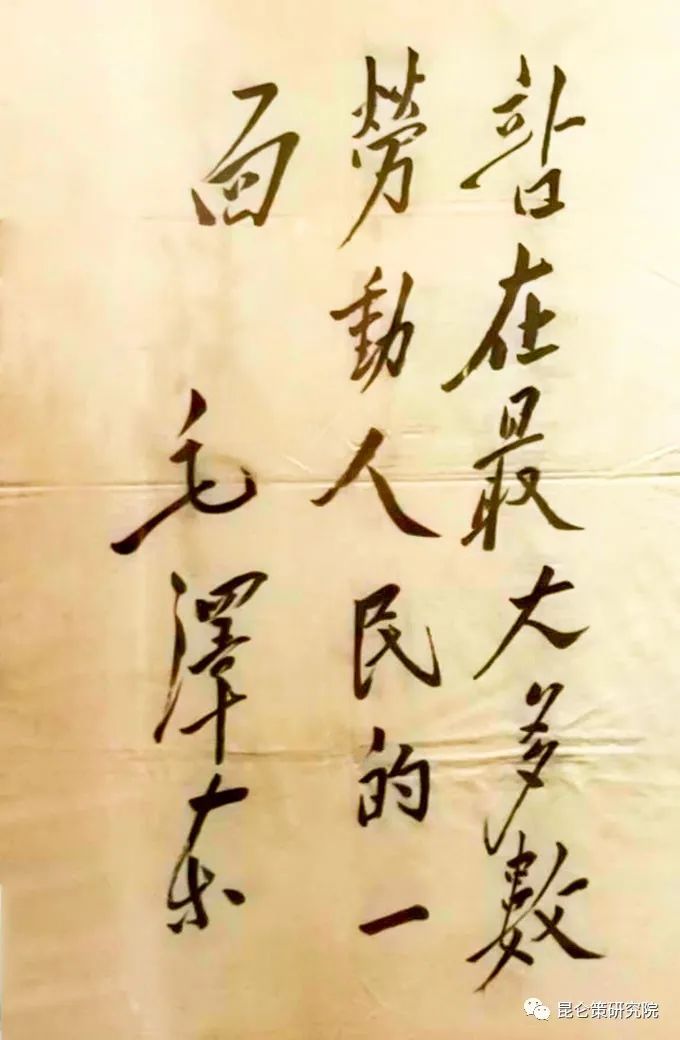 站在最大多數
勞動人民的一
面
毛澤东
昆仑策研究院